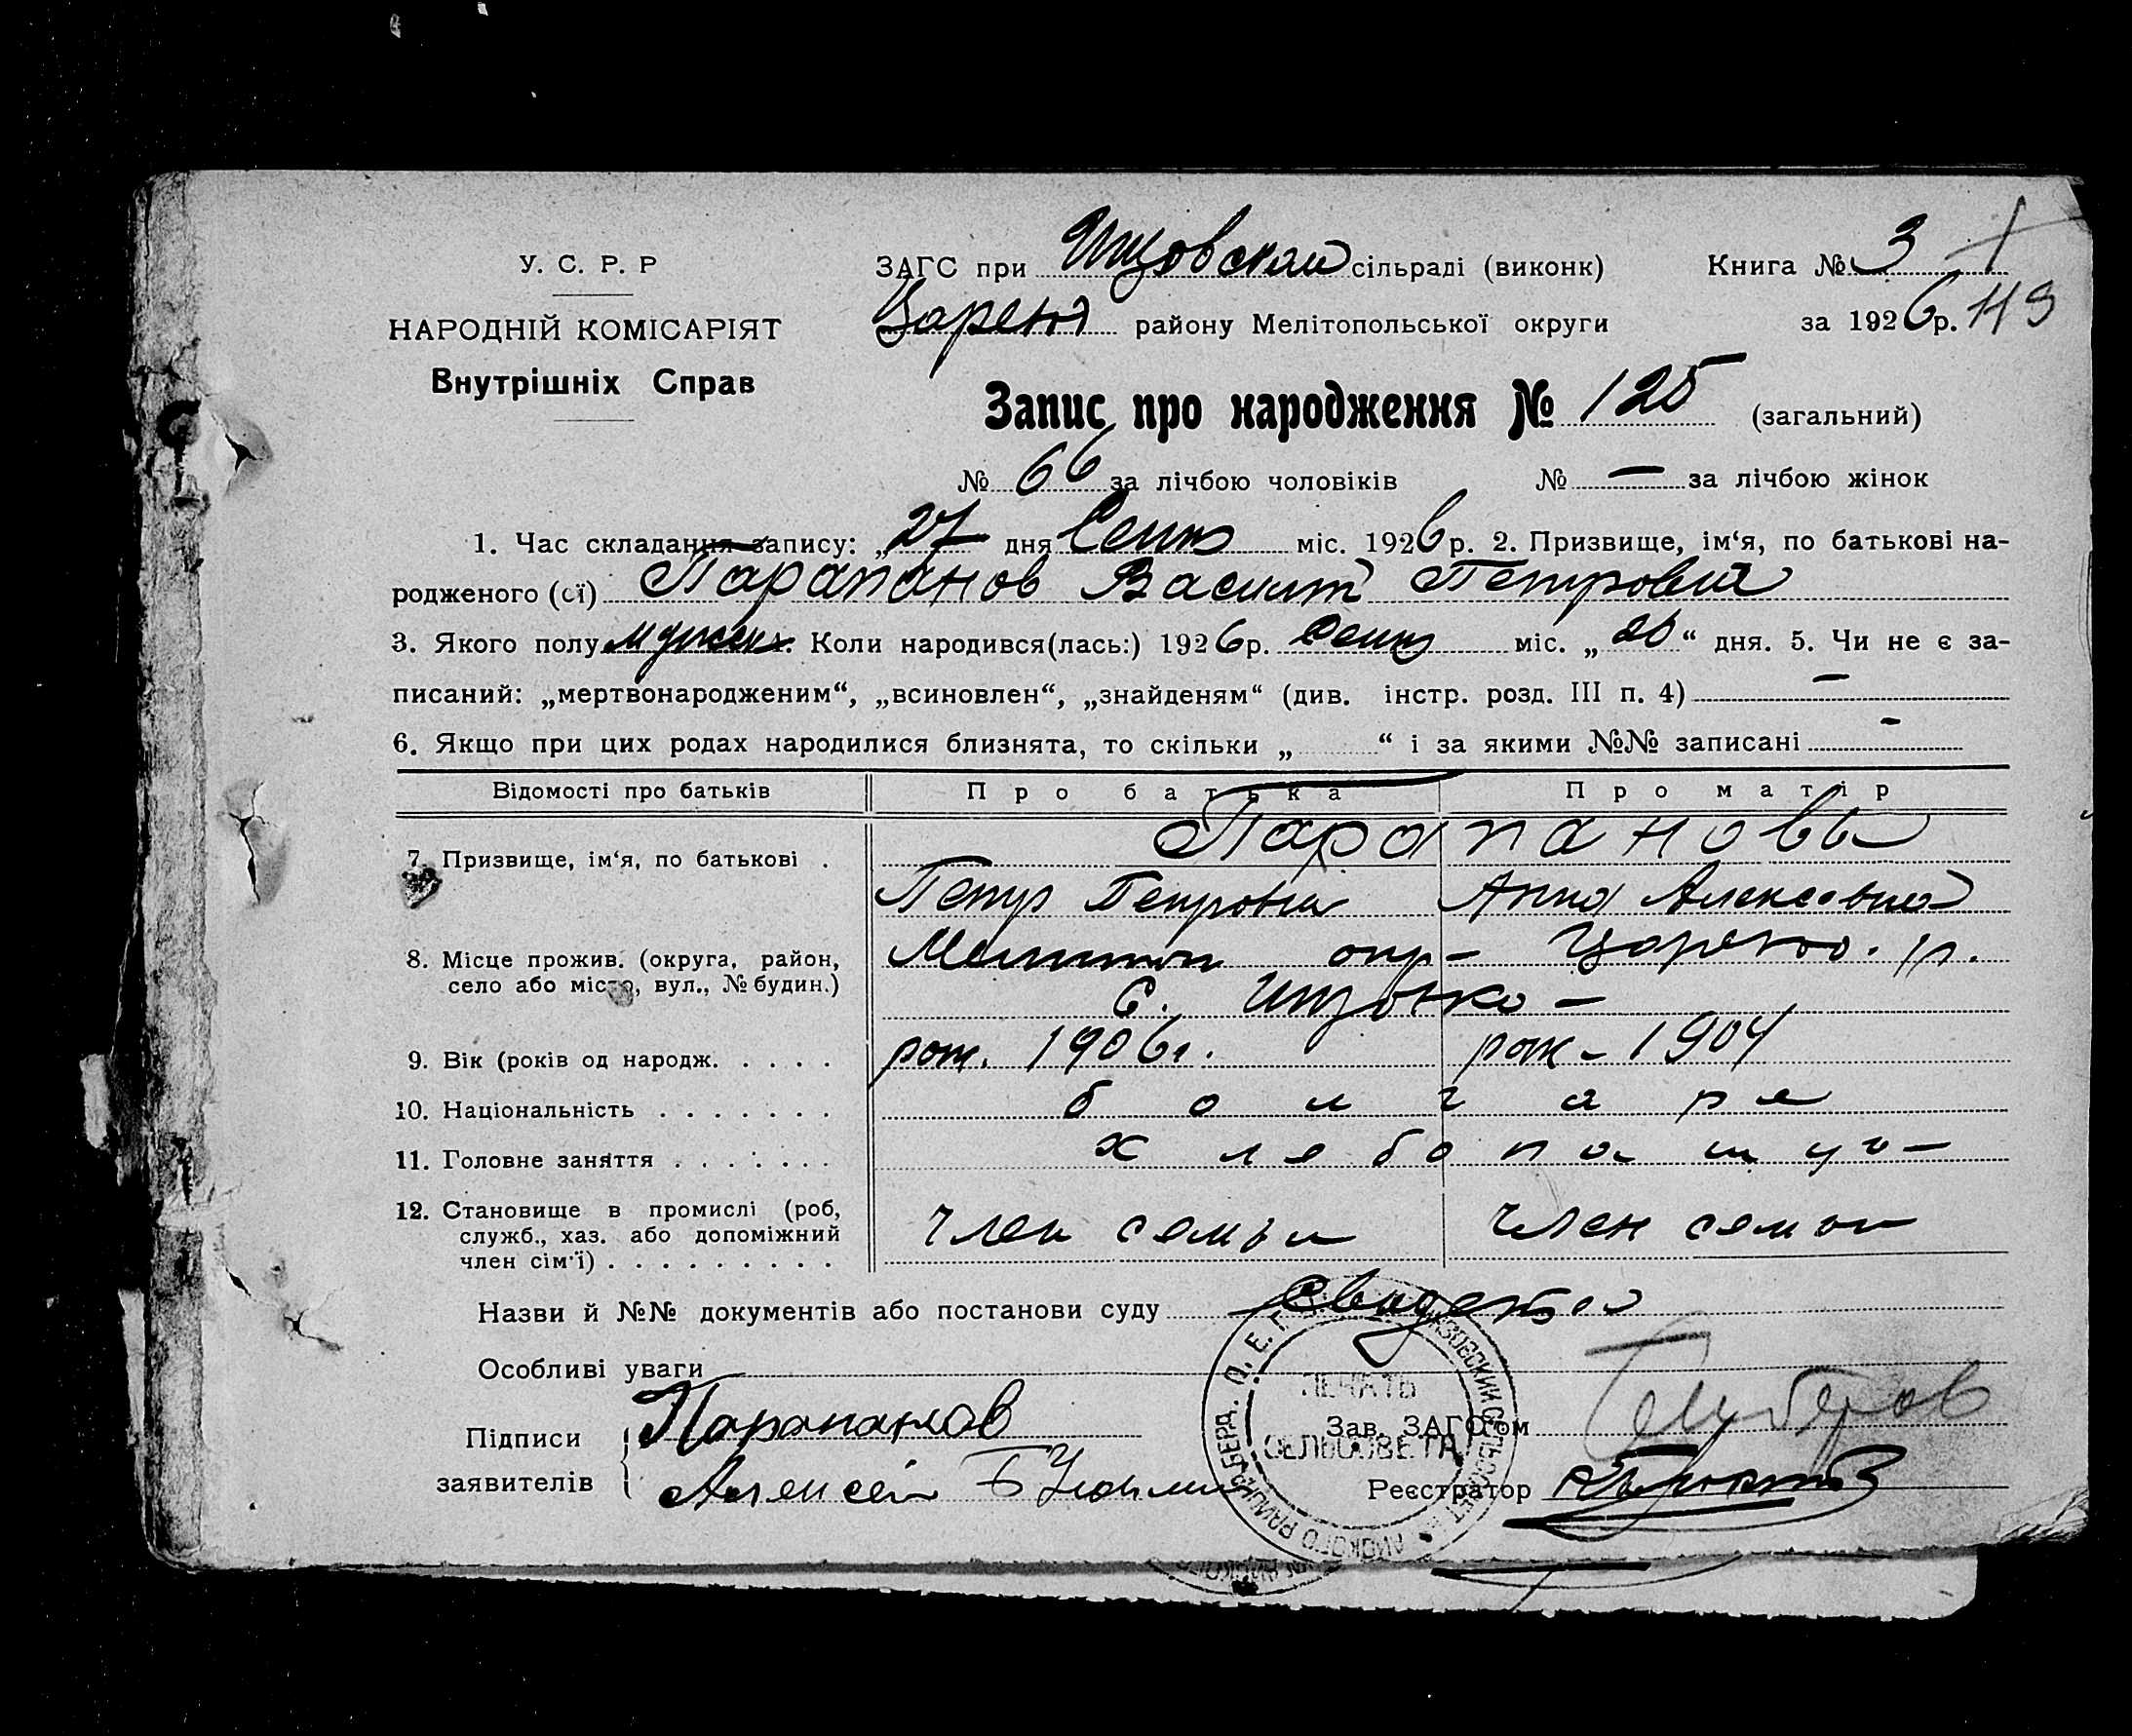 У. С. Р. Р
НАРОДНІЙ КОМІСАРІЯТ
Внутрішніх Справ
ЗАГС при сільраді (виконк)
району Мелітопольської округи
Книга № 3
за 1926 р. 119
Запис про народження № 125 (загальний)
№ 66 за лічбою чоловіків № — за лічбою жінок
1. Час складання запису: „ 27 дня Сент міс. 1926 р. 2. Призвище, ім‘я, по батькові на-
родженого (ої) Парапанов Васил Петрович
3. Якого полу мужск. Коли народився(лась:) 1926 р. Сент міс. „ “ дня. 5. Чи не є за-
писаний: „мертвонародженим“, „всиновлен“, „знайденям“ (див. інстр. розд. III п. 4) —
6. Якщо при цих родах народилися близнята, то скільки „ “ і за якими №№ записані —
Відомості про батьків Про батька Про матір
7. Призвище, ім‘я, по батькові . Парапановы
Петр Петрович Анна Алексеевна
8. Місце прожив. (округа, район, Мелитоп окр –
село або місто, вул., № будин.) с.
9. Вік (років од народж. . . . . рож. 1906 г. рож – 1904
10. Національність . . . . . . . болгаре
11. Головне заняття . . . . . . . хлебопашцы
12. Становище в промислі (роб, член семьи член семьи
служб., хаз. або допоміжний
член сім‘ї) . . . . . . . . .
Назви й №№ документів або постанови суду
Особливі уваги
Підписи
заявителів
Парапанов
Алексей
ПЕЧАТЬ
СЕЛЬСОВЕТА
Зав. ЗАГС‘ом
Реєстратор